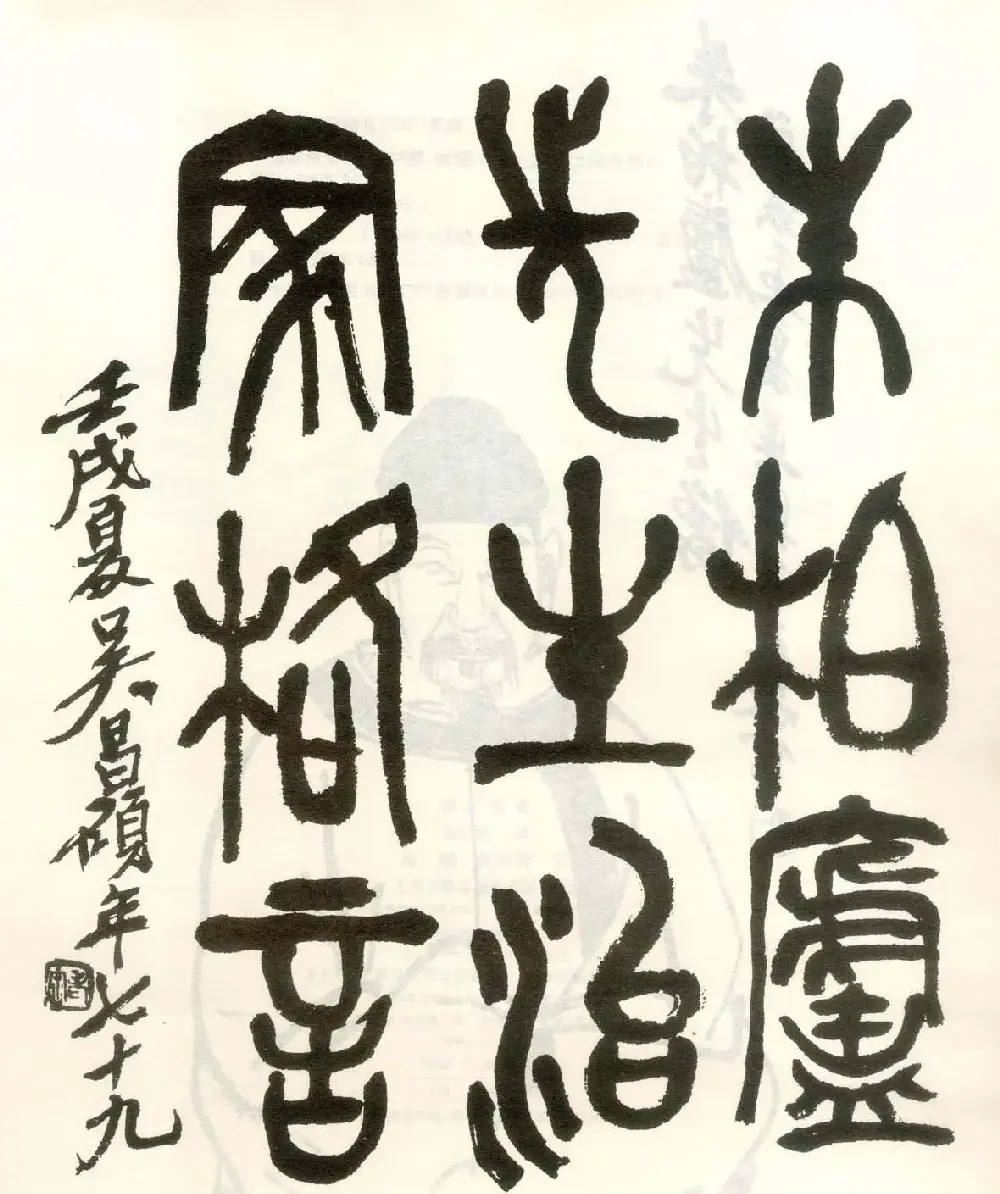 朱柏廬
先生治
家格言
壬戌夏吳昌碩年七十九